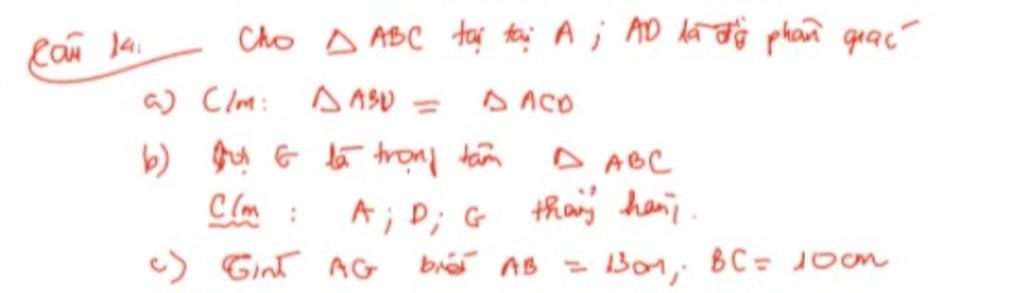 Câu 14: Cho △ ABC tại A ; AD là đg phân giác
a) C/m: △ ABD = △ ACD
b) Gọi G là trọng tâm △ ABC
C/m : A ; D ; G thẳng hàng.
c) Tính AG biết AB = 13cm ; BC = 10cm